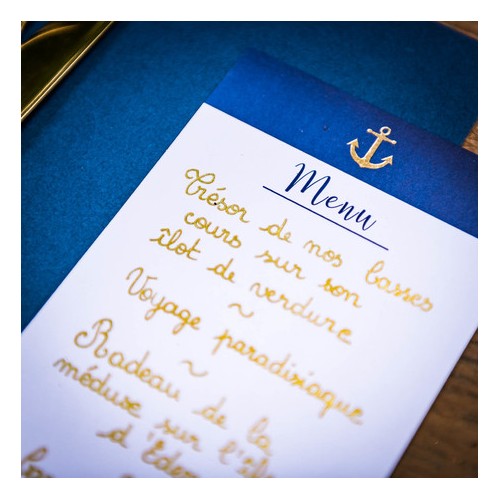 Menu
Trésor de nos basses
cours sur son
îlot de verdure
~
Voyage paradisiaque
~
Radeau de la
méduse sur l'île
d'Eden